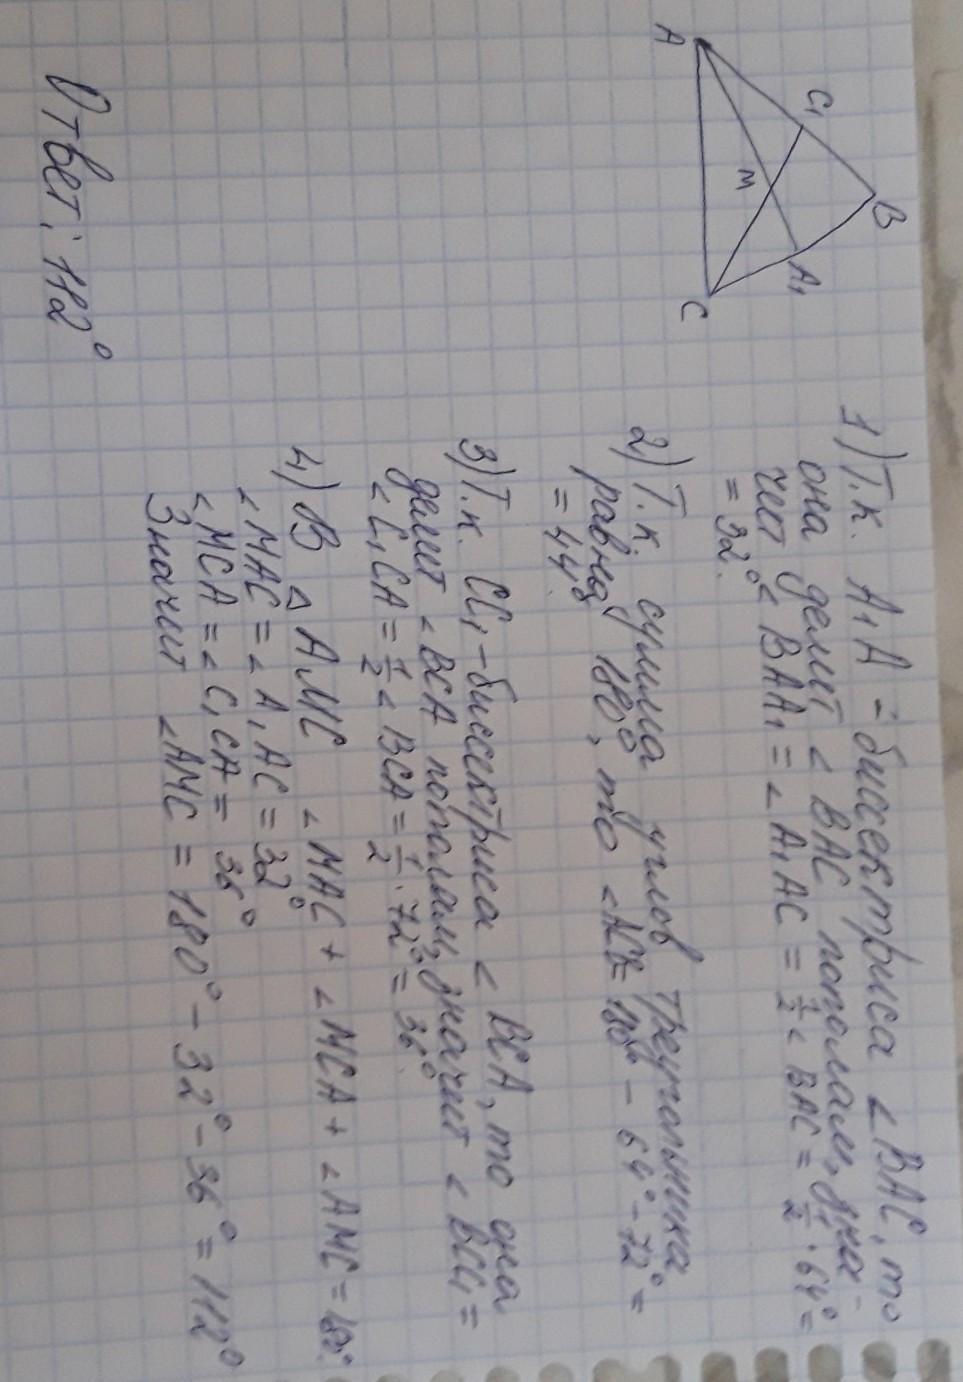 A
C₁
B
M
A₁
C
1) Т.к. A₁A - биссектриса ∠BAC, то
она делит ∠BAC пополам, зна-
чит ∠BAA₁ = ∠A₁AC = 1/2 ∠BAC = 1/2 · 64° =
= 32°.
2) Т.к. сумма углов треугольника
равна 180°, то - 64° - 72° =
= 44°.
3) Т.к. CC₁ - биссектриса ∠BCA, то она
делит ∠BCA пополам, значит ∠BCC₁ =
∠C₁CA = 1/2 ∠BCA = 1/2 · 72° = 36°.
4) В △AMC ∠MAC + ∠MCA + ∠AMC = 180°.
∠MAC = ∠A₁AC = 32°
∠MCA = ∠C₁CA = 36°
Значит ∠AMC = 180° - 32° - 36° = 112°
Ответ: 112°